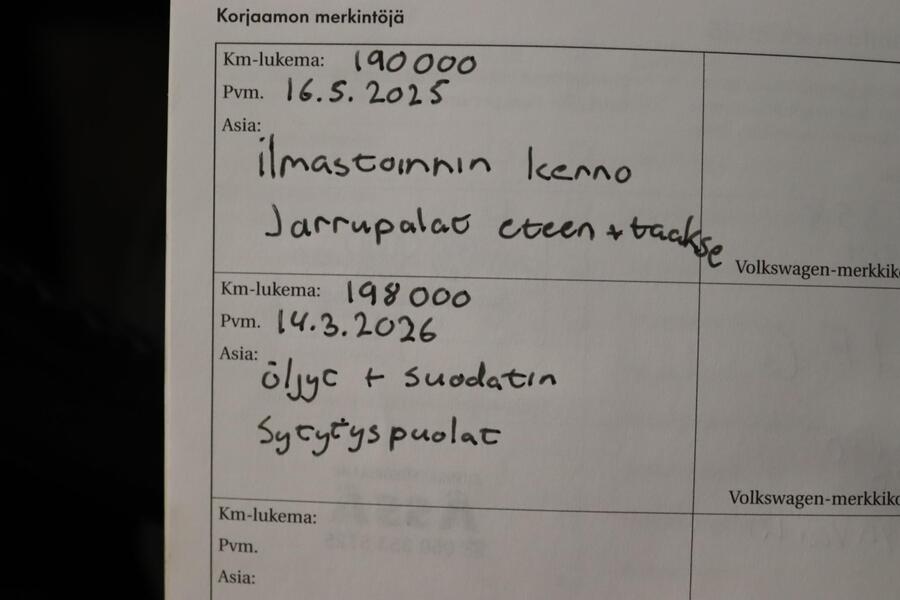 Korjaamon merkintöjä
Km-lukema: 190 000
Pvm. 16.5.2025
Asia:
ilmastoinnin kenno
Jarrupalat eteen + taakse
Volkswagen-merkkiko
Km-lukema: 198 000
Pvm. 14.3.2026
Asia:
öljyt + suodatin
Sytytyspuolat
Volkswagen-merkkiko
Km-lukema:
Pvm.
Asia: